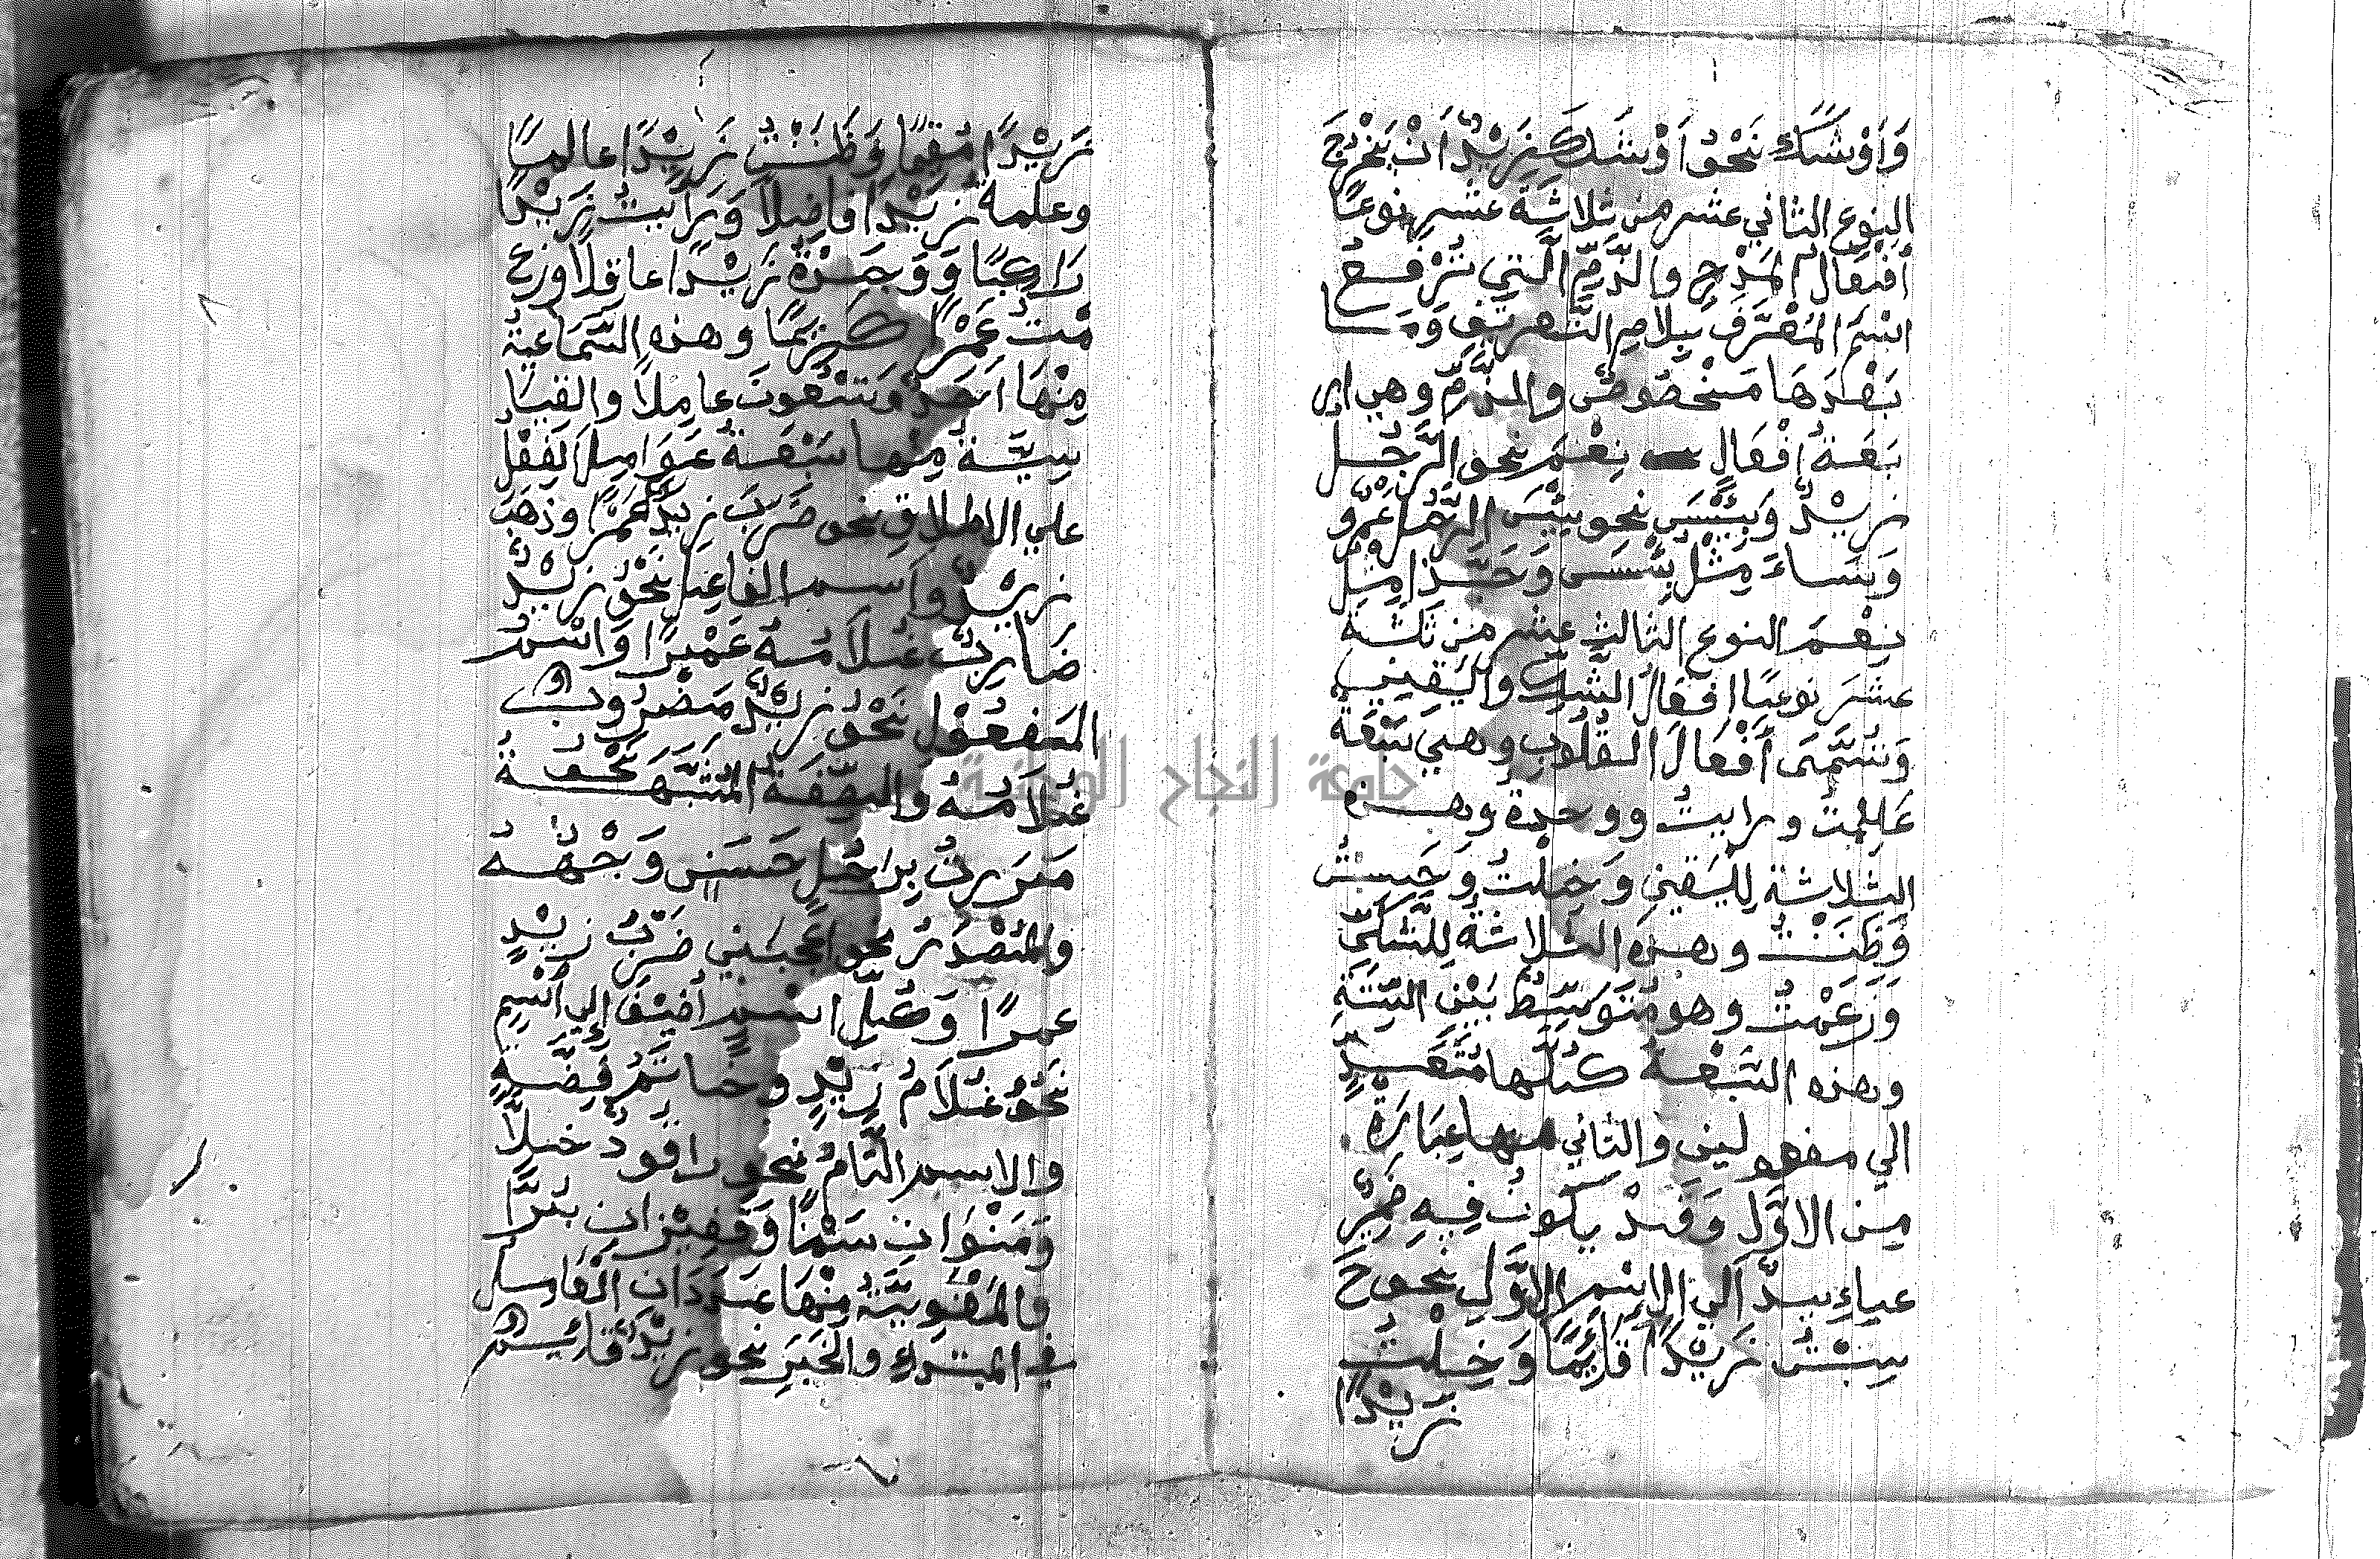 وَأَوْشَكَ نَحْوُ أَوْشَكَ زَيْدٌ أَنْ يَخْرُجَ
النوع الثاني عشر من ثلاثَةَ عشر نوعًا
أفعَالُ المَدْحِ والذَّمِّ الَّتِي تَرْفَعُ
اسْمَ المُعَرَّفَ بِلَامِ التَّعريفِ وَمَا
بَعْدَهَا مَخْصُوصُ والمذَّمِّ وهي ار
بَعَةُ أفْعَالٍ نِعْمَ نحو الرَّجُل
زَيْدٌ وَبِئْسَ نحو بِئْسَ الرَّجُل عَمْرٌو
وَسَاءَ مِثْلُ بِئْسَ وَحَبَّذَا مِثْلُ
نِعْمَ النوع الثالث عشر مِن ثَلثَةَ
عشَرَ نوعًا افعَالُ الشَّكِ واليَقِينِ
وَتُسَمَّى أَفْعَالَ القُلُوبِ وهِيَ سَبْعَةُ
عَلِمتُ ورايتُ ووجدة وهذه
الثلاثة لِليَقينِ وَخِلتُ وَحَسِبتُ
وَظَنَنْتُ وهذه الثلاثةُ لِلشَّكِّ
وَزَعَمْتُ وهو مُتَوَسِّطٌ بَيْنَ السِّتَةِ
وهذه السَّبْعَةُ كُلُّهَا مُتَعَدٍّ
الي مفعولين والثاني منها عِبَارَةٌ
مِن الاوَّلِ وَقَدْ يَكُونُ فِيهِ ضَمِيرٌ
عباءِيدٌ اَلي الاِسْمِ الاوَّلِ نحو حَ
سِبْتُ زَيْدًا قَائِمًا وَخِلْتُ
زَيْدًا
زَيْدًا مُقِيمًا وَظَنَنْتُ زَيْدًا عالِمًا
وعلمة زَيْدًا فاضِلًا وَرَايتُ زَيْدًا
رَاكِبًا وَوَجَدْةُ زَيْدًا عاقِلًا وزع
مْتُ عَمْرًا كَرِيمًا وهذه السَّمَاعِيةُ
مِنْهَا اَحَدٌ وَتِسْعُونَ عامِلًا والقِيَا
سِيَّةُ مِنْها سَبْعَةُ عَوَامِلَ الفِعْلِ
علي الاطلاقِ نحو ضَرَبَ زَيْدٌ عَمْرًا وذَهَبَ
زَيْدٌ وَاسم الفاعِلِ نَحْوُ زَيْدٌ
ضَارِبٌ غُلَامُهُ عَمْرًا وَاسْمُ
المَفعُوْلِ نَحْوُ زَيْدٌ مَضْرُوبٌ
غُلَامُهُ وَالصِّفَةُ المُشَبَّهَةُ نَحْوُ
مَرَرتُ بِرَاجُلٍ حَسَنٍ وَجْهُهُ
والمَصْدَرُ نحو اَعْجَبَنِي ضَرْبُ زَيْدٍ
عمرًا وَكُلُّ اسْمٍ اُضِيْفَ اِلي اسْمٍ
نَحْوُ غُلَامُ زَيْدٍ وخَاتَمُ فِضَّةٍ
والاسم التَّامُ نحو رَاقُودٌ خَلًّا
وَمَنَوَانِ سَمْنًا وَقَفِيْزانِ بُرًّا
والمَعْنَوِيَّةُ مِنْهَا عَدَدَانِ العَامِل
في المبتدَاءِ والخَبَرِ نحو زَيْدٌ قَائِمٌ
جامعة النجاح الوطنية